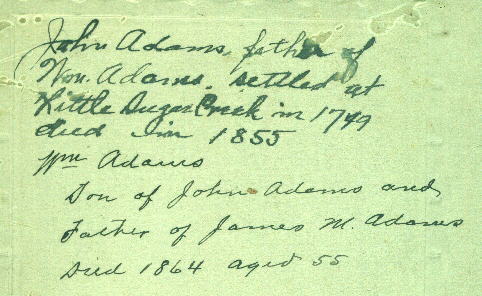 John Adams, father of
Wm. Adams. settled at
Little Sugar Creek in 1749
died in 1855
Wm Adams
Son of John Adams and
Father of James M. Adams
Died 1864 aged 55